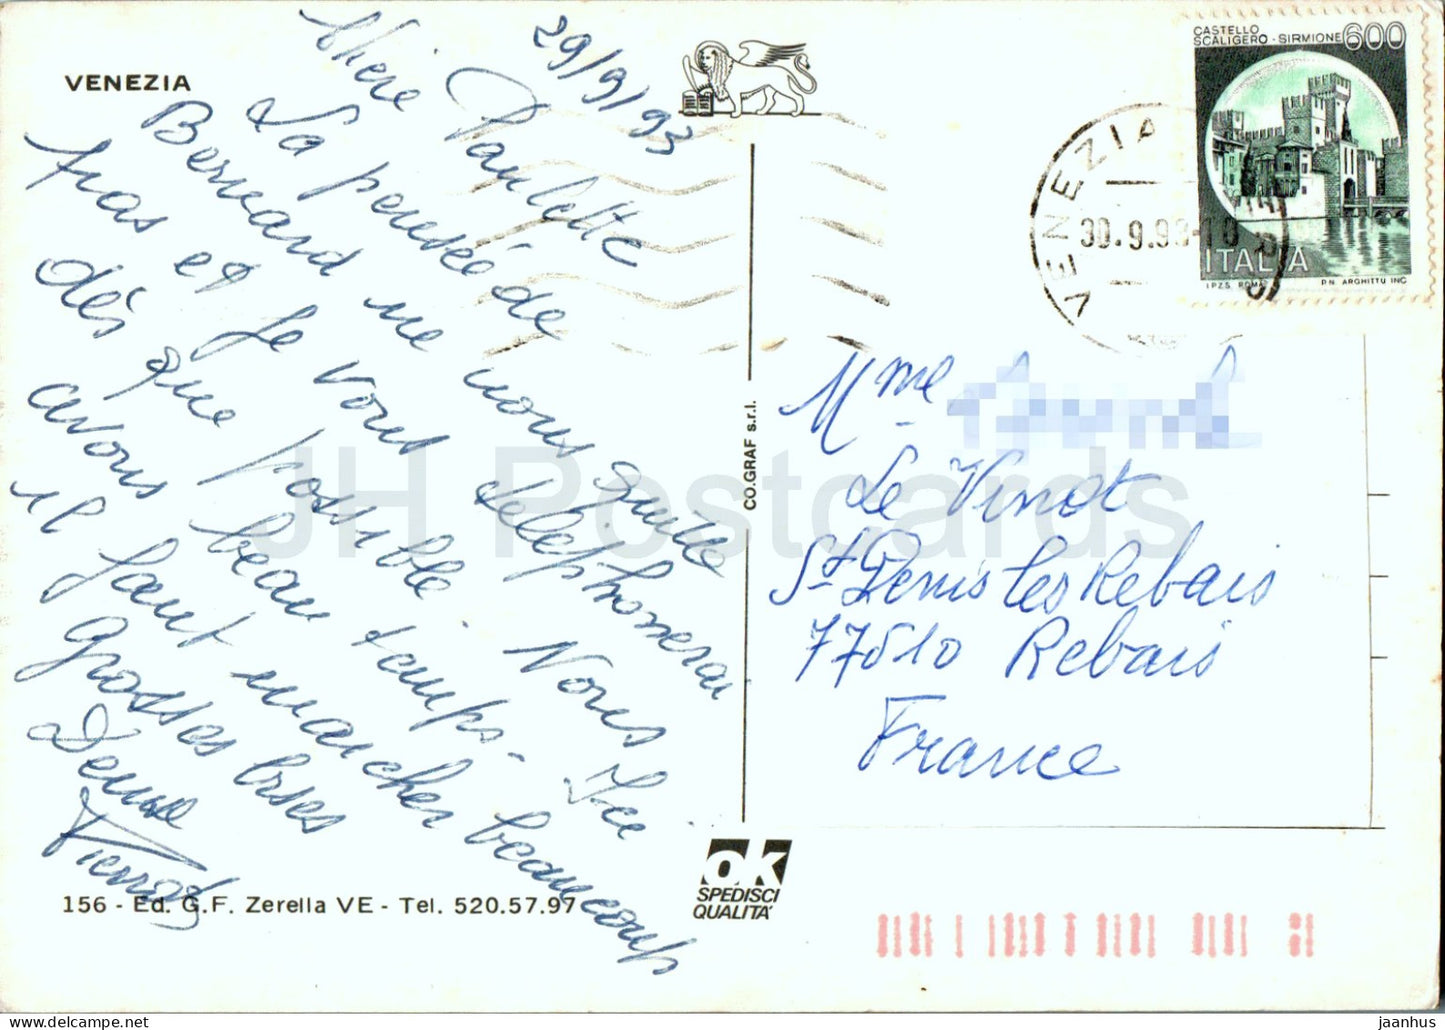 VENEZIA
29/9/93
Chère Paulette
La pensée de
Bernard me nous quitte
pas et je vous telephonerau
dés que possible. Nous
avons beau temps - Ici
il faut marcher beaucoup
grosses bises
Denise
Pierrot
156 - Ed. G.F. Zerella VE - Tel. 520.57.97
CO.GRAF s.r.l.
ok
SPEDISCI
QUALITA'
CASTELLO
SCALIGERO - SIRMIONE 600
ITALIA
I.P.Z.S. ROMA
P.N. ARGHITTU INC.
VENEZIA
30.9.93-10
Mme
Le Vinot
St Denis les Rebais
77510 Rebais
France
JH Postcards
www.delcampe.net
jaanhus